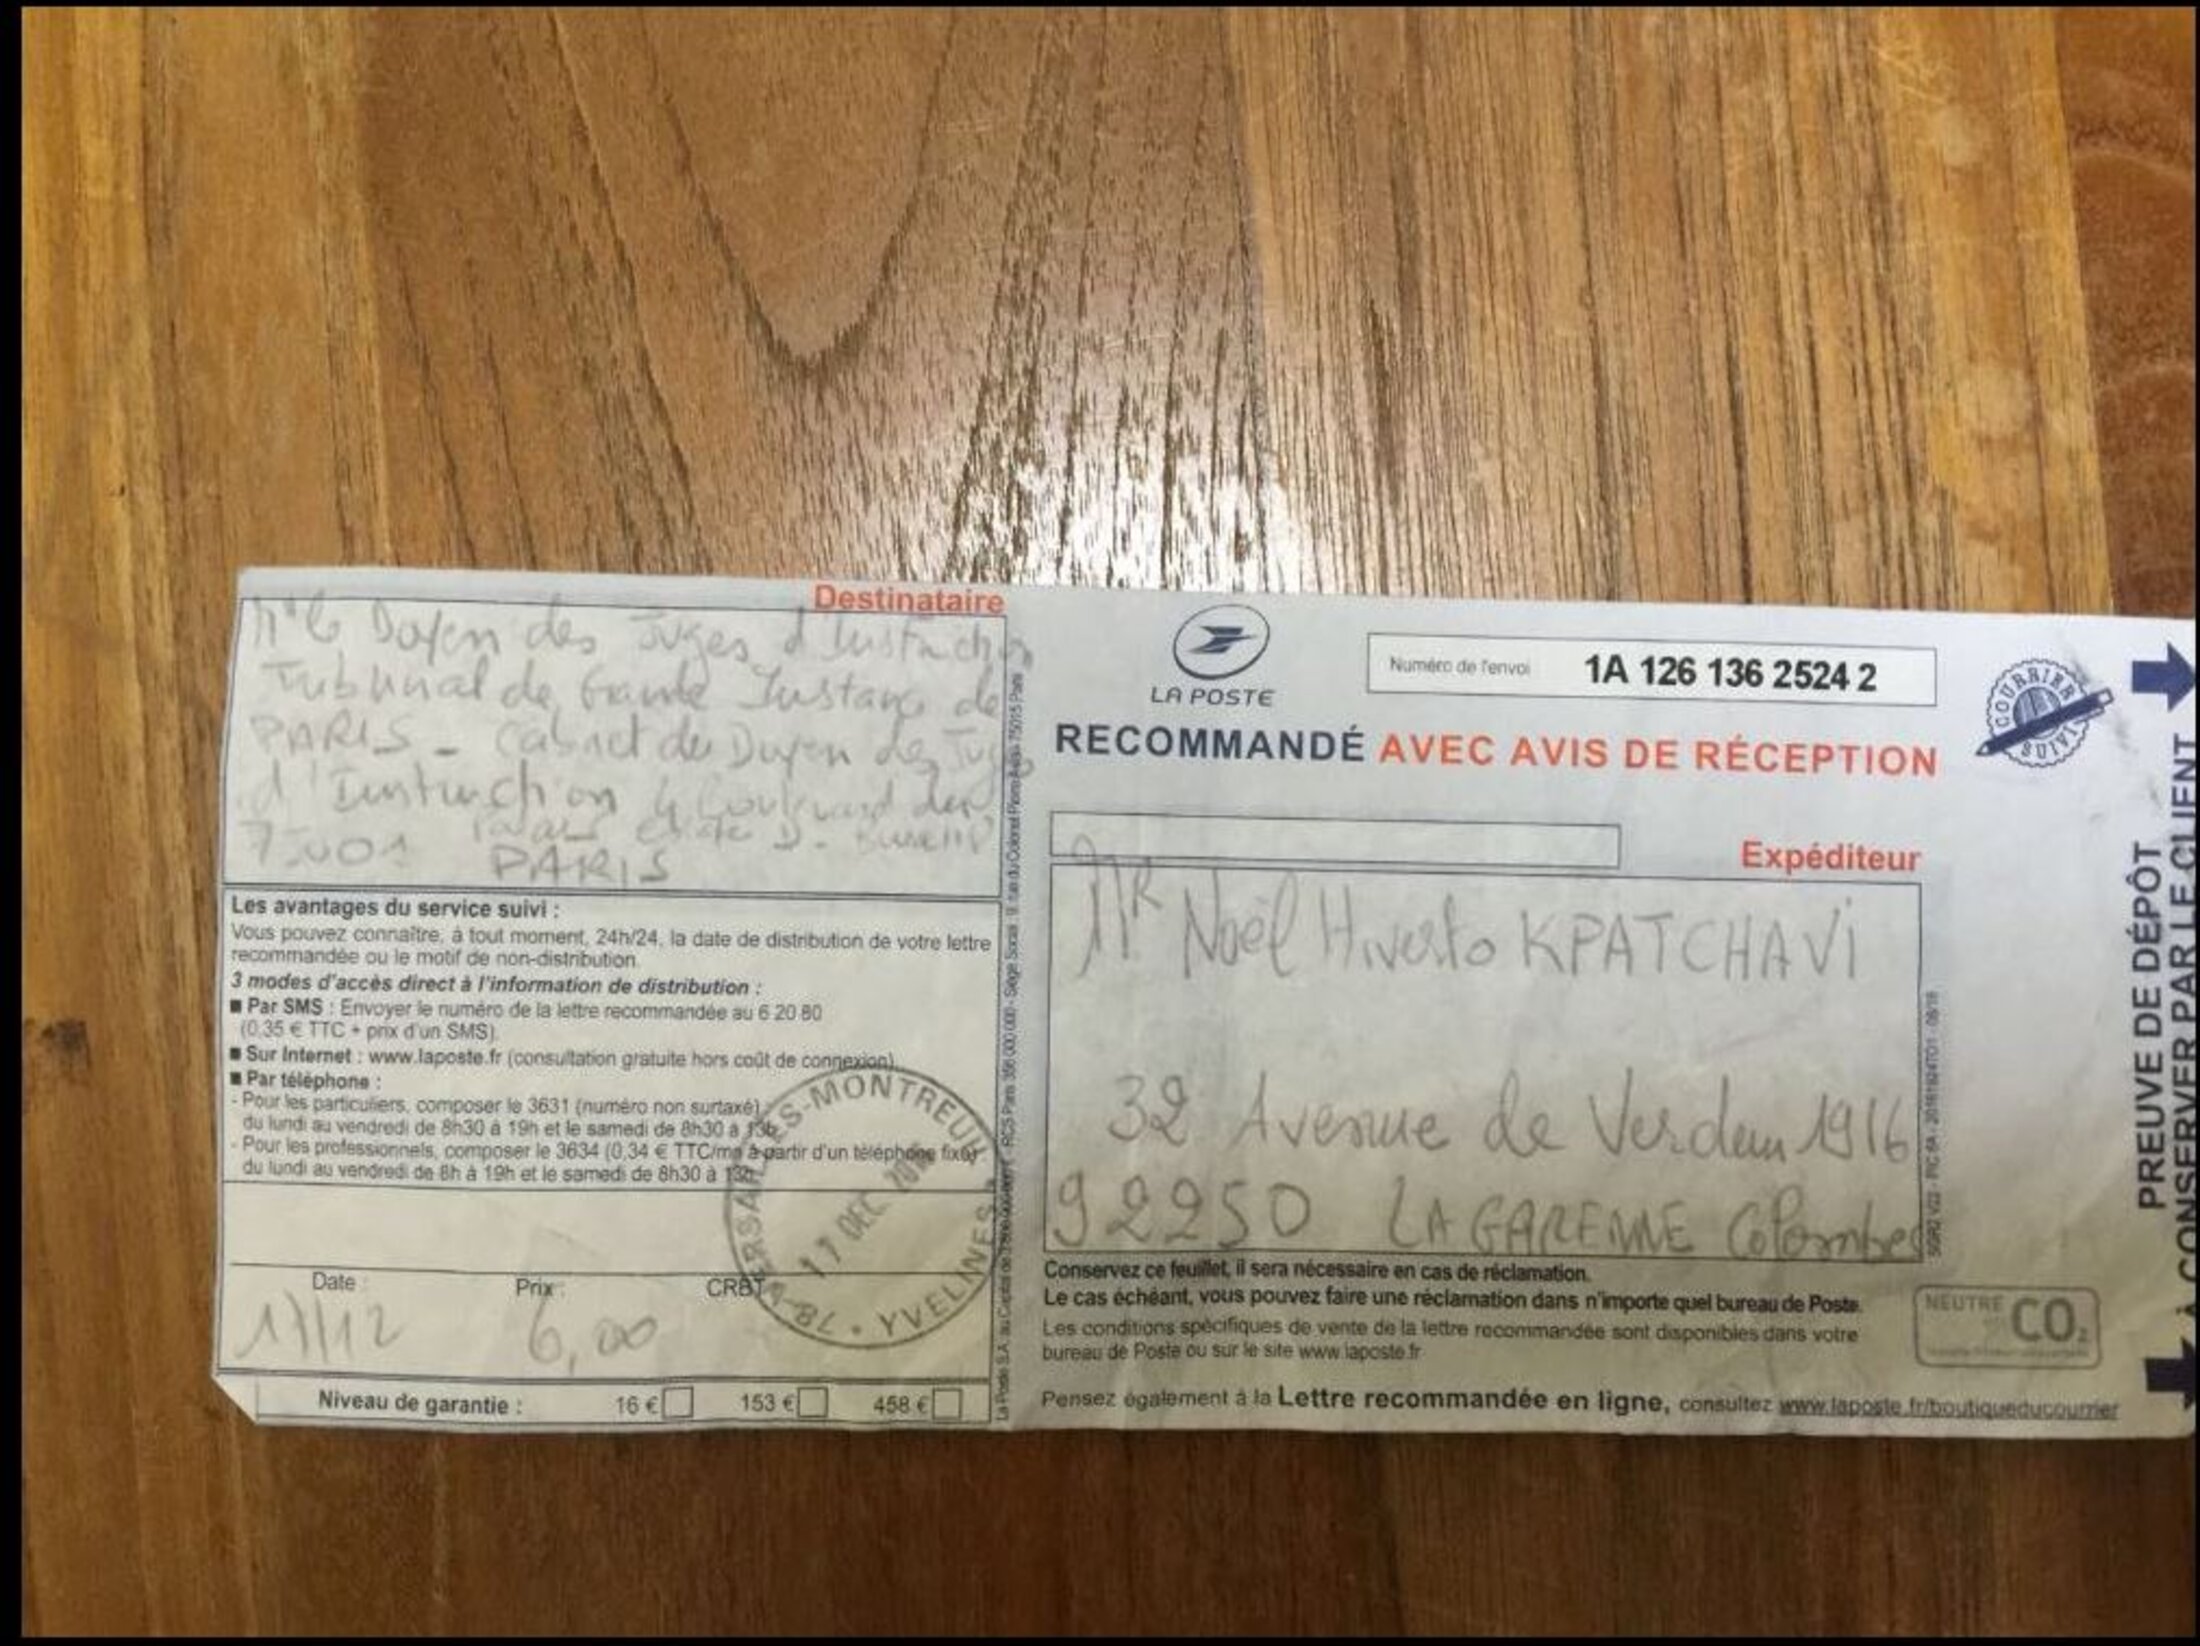 Destinataire
Mr le Doyen des Juges d'Instruction
Tribunal de Grande Instance de
PARIS - Cabinet du Doyen des Juges
d'Instruction 4 boulevard du
Palais
75001 PARIS
Les avantages du service suivi :
Vous pouvez connaître, à tout moment, 24h/24, la date de distribution de votre lettre
recommandée ou le motif de non-distribution.
3 modes d'accès direct à l'information de distribution :
■ Par SMS : Envoyer le numéro de la lettre recommandée au 6 20 80
(0,35 € TTC + prix d'un SMS).
■ Sur Internet : www.laposte.fr (consultation gratuite hors coût de connexion).
■ Par téléphone :
- Pour les particuliers, composer le 3631 (numéro non surtaxé)
du lundi au vendredi de 8h30 à 19h et le samedi de 8h30 à 13h.
- Pour les professionnels, composer le 3634 (0,34 € TTC/mn à partir d'un téléphone fixe)
du lundi au vendredi de 8h à 19h et le samedi de 8h30 à 13h.
VERSAILLES-MONTREUIL
17 DEC.
78 • YVELINES
Date : Prix : CRBT
17/12 6,00
Niveau de garantie : 16 € 153 € 458 €
LA POSTE
Numéro de l'envoi 1A 126 136 2524 2
COURRIER SUIVI
RECOMMANDÉ AVEC AVIS DE RÉCEPTION
Expéditeur
Mr Noël Hiverto KPATCHAVI
32 Avenue de Verdun 1916
92250 LA GARENNE Colombes
Conservez ce feuillet, il sera nécessaire en cas de réclamation.
Le cas échéant, vous pouvez faire une réclamation dans n'importe quel bureau de Poste.
Les conditions spécifiques de vente de la lettre recommandée sont disponibles dans votre
bureau de Poste ou sur le site www.laposte.fr
Pensez également à la Lettre recommandée en ligne, consultez www.laposte.fr/boutiqueducourrier
NEUTRE CO2
PREUVE DE DÉPÔT
À CONSERVER PAR LE CLIENT